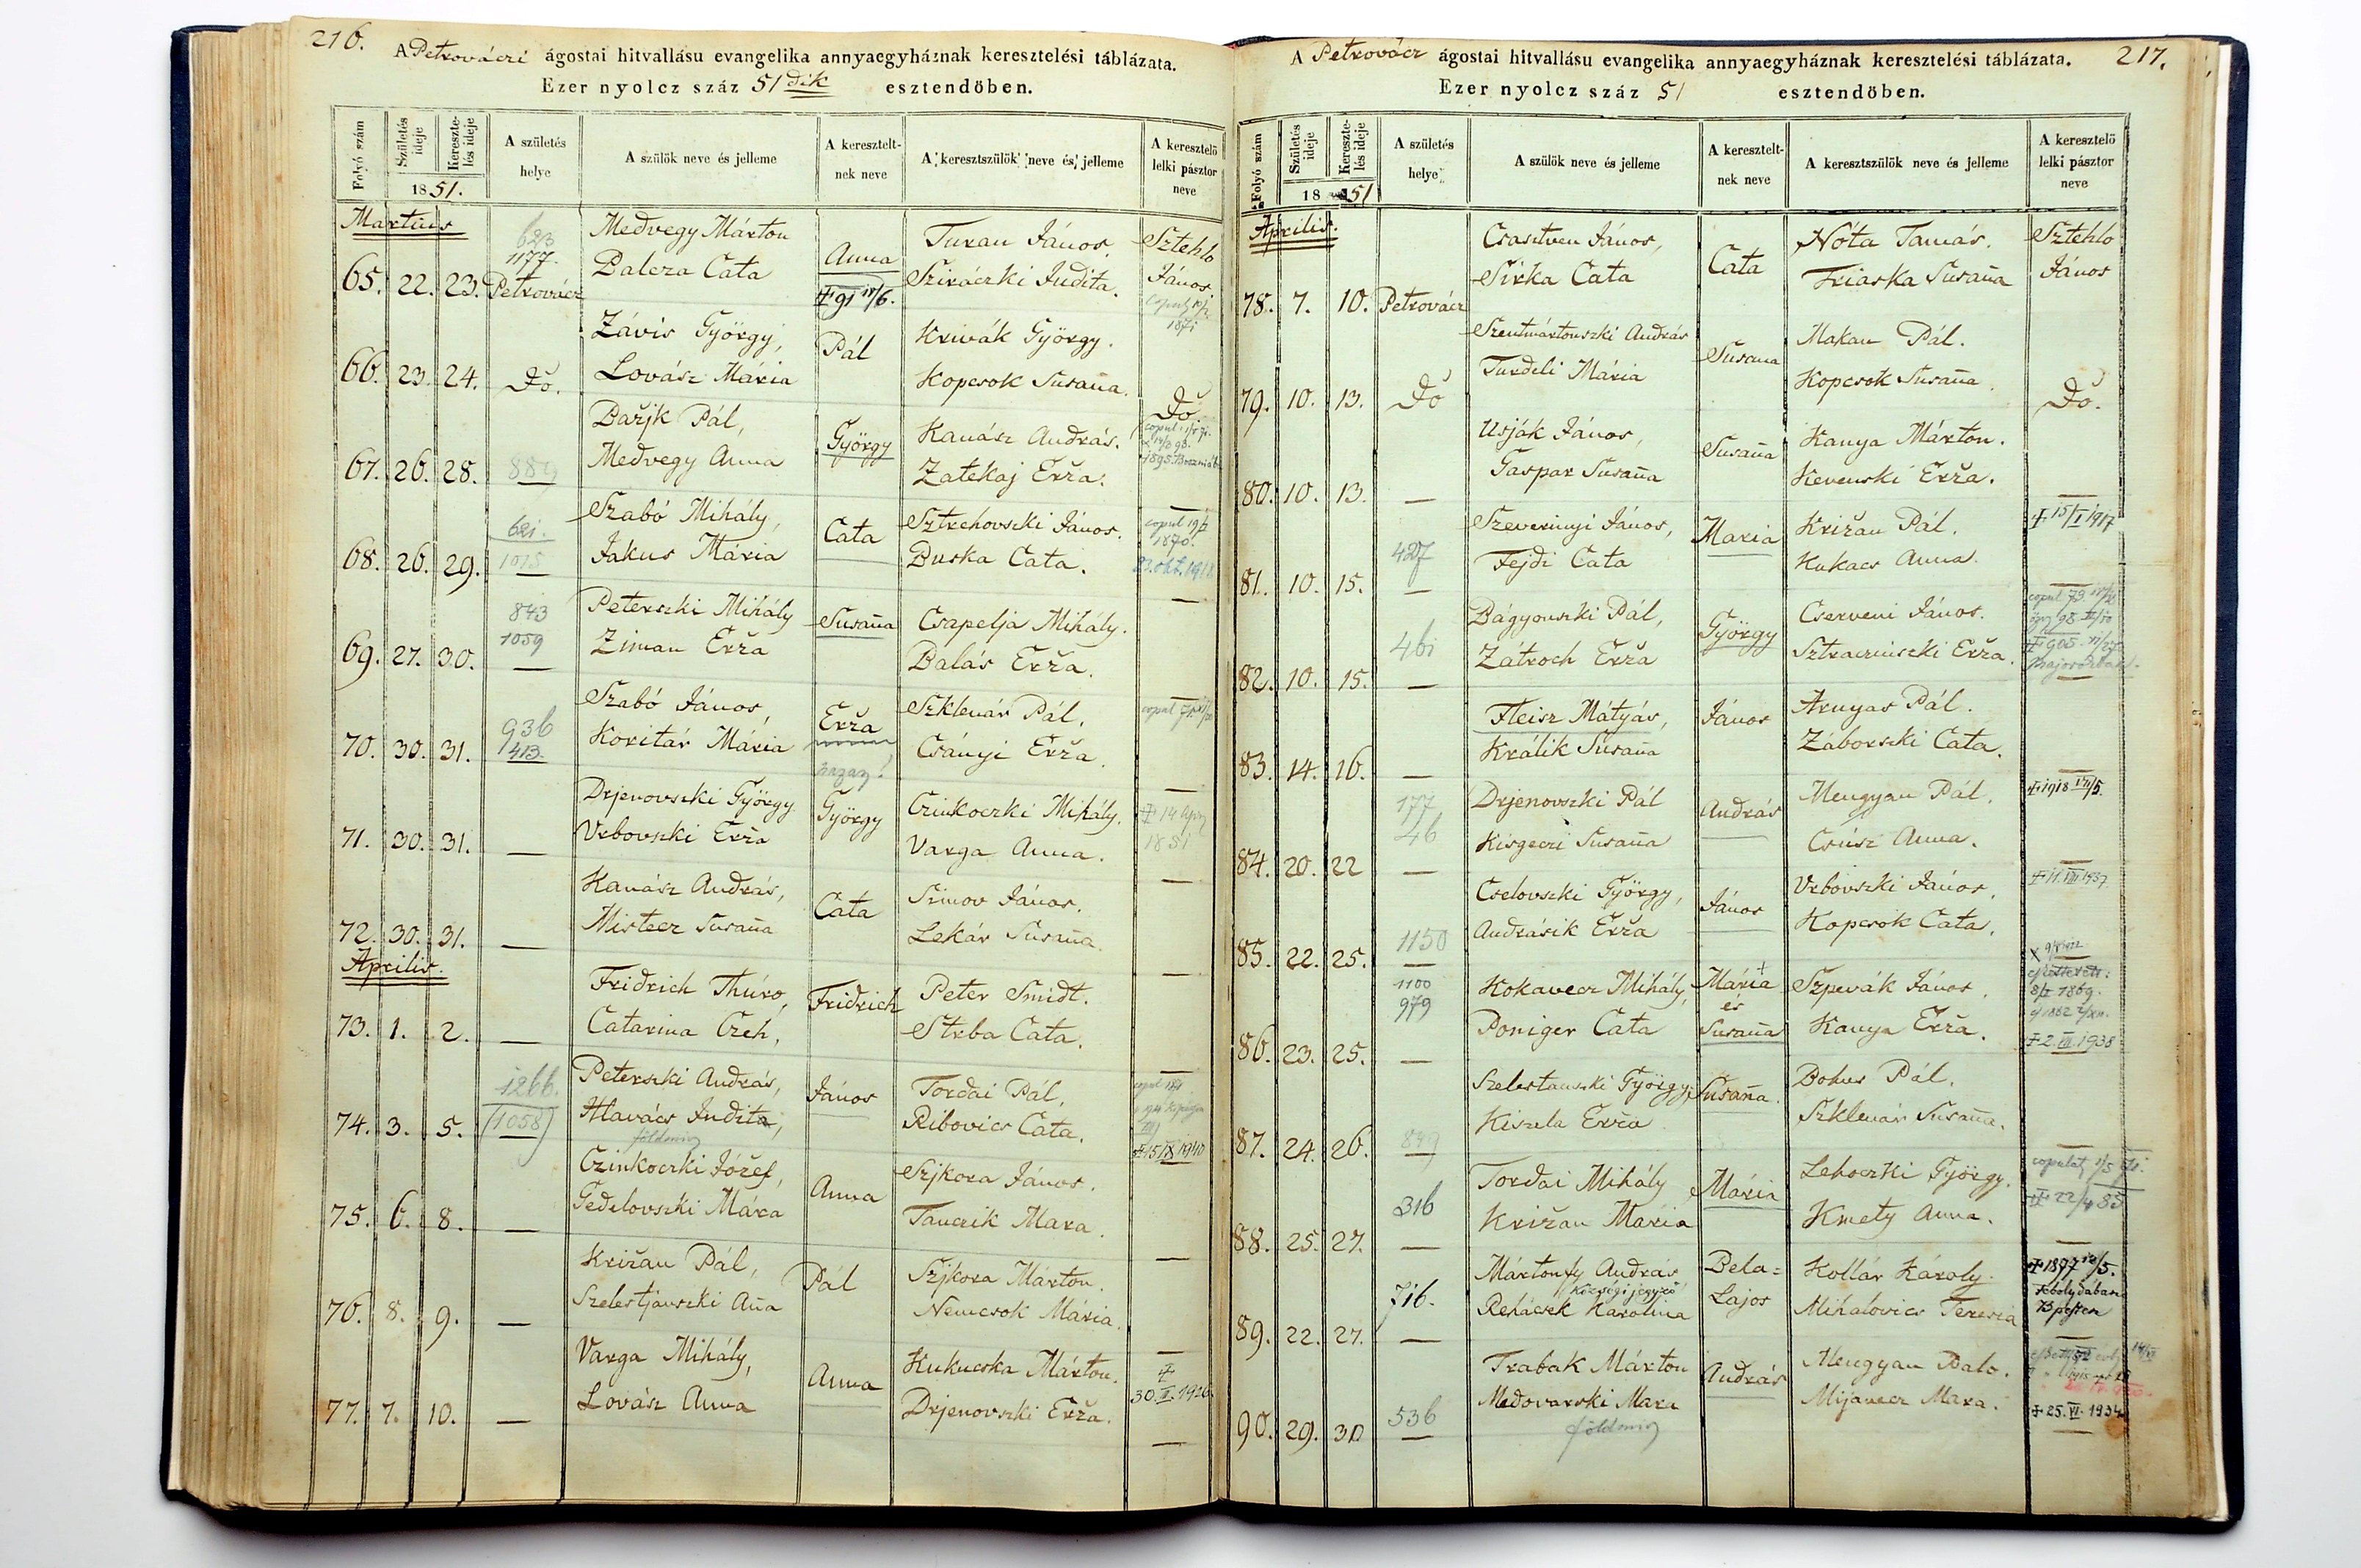 216.
A Petrováczi ágostai hitvallásu evangelika annyaegyháznak keresztelési táblázata.
Ezer nyolcz száz 51 dik esztendöben.
Folyó szám
Születés ideje
Keresztelés ideje
1851.
A születés helye
A szülök neve és jelleme
A kereszteltnek neve
A keresztszülök neve és jelleme
A keresztelö lelki pásztor neve
Martius
623
1177.
65. 22. 23. Petrovácz
Medvegy Márton
Balcza Cata
Anna
Turan János.
Sziráczki Judita.
Sztehlo
János.
1871
66. 23. 24. Do.
Závis György,
Lovász Mária
Pál
Krivák György.
Kopcsok Susaña.
Do.
67. 26. 28.
889
Bařjk Pál,
Medvegy Anna
György
Kanász András.
Zatekaj Erža.
68. 26. 29. —
621.
1015
Szabó Mihály,
Jakus Mária
Cata
Sztrehovszki János.
Buska Cata.
1870.
69. 27. 30. —
843
1059
Peterszki Mihály
Ziman Erža
Susaña
Csapelja Mihály.
Balás Erža.
70. 30. 31.
936
413.
Szabó János,
Koritár Mária
Erža
Szklenár Pál.
Csányi Erža.
71. 30. 31. —
Drjenovszki György
Vrbovszki Erža
György
Czinkoczki Mihály.
Varga Anna.
1851
72. 30. 31. —
Kanász András,
Mistecz Susaña
Cata
Simov János.
Lekár Susaña.
Aprilis.
73. 1. 2. —
Fridrich Thúró,
Catarina Czeh,
Fridrich
Peter Smidt.
Strba Cata.
74. 3. 5.
1266.
1058
Peterszki András,
Hlavács Judita,
János
Tordai Pál,
Ribovics Cata.
75. 6. 8. —
Czinkoczki Józef,
Gedelovszki Mára
Anna
Szjkora János.
Tanczik Mara.
76. 8. 9. —
Križan Pál,
Szelestjanszki Aña
Pál
Szjkora Márton.
Nemcsok Mária.
77. 7. 10. —
Varga Mihály,
Lovász Anna
Anna
Kukucska Márton.
Drjenovszki Erža.
217.
A Petrovácz ágostai hitvallásu evangelika annyaegyháznak keresztelési táblázata.
Ezer nyolcz száz 51 esztendöben.
Folyó szám
Születés ideje
Keresztelés ideje
1851
A születés helye
A szülök neve és jelleme
A kereszteltnek neve
A keresztszülök neve és jelleme
A keresztelö lelki pásztor neve
Aprilis.
78. 7. 10. Petrovácz
Csasztven János,
Sirka Cata
Cata
Nóta Tamás.
Triaska Susaña
Sztehlo
János
79. 10. 13. Do
Szentmártonszki András
Turdeli Mária
Susana
Makan Pál.
Kopcsok Susaña.
Do.
80. 10. 13. —
Usják János,
Gaspar Susaña
Susaña
Kanya Márton.
Kevenski Erža.
81. 10. 15. —
Szeverinyi János,
Fejdi Cata
Maria
Križan Pál.
Kukacs Anna.
‡ 15/I 1917
82. 10. 15. —
461
Bágyonszki Pál,
Zátroch Erža
György
Cserveni János.
Sztracsinszki Erža.
83. 14. 16. —
Fleisz Mátyás,
Králik Susaña
János
Arnyas Pál.
Záborszki Cata.
84. 20. 22 —
177
46
Drjenovszki Pál
Kisgeczi Susaña
András
Mengyan Pál.
Csúsz Anna.
‡ 1918 VII/5.
85. 22. 25.
1150
Cselovszki György,
Andrásik Erža
János
Vrbovszki János.
Kopcsok Cata.
‡ 11. VIII. 1937
86. 23. 25. —
1100
979
Kokavecz Mihály,
Poniger Cata
Mária
és
Susaña
Szpevák János.
Kanya Erža.
‡ 2. VII. 1938
87. 24. 26.
Szelestanszki György,
Kiszela Erža
Susaña.
Bohus Pál.
Szklenár Susaña.
88. 25. 27. —
316
Tordai Mihály
Križan Mária
Mária
Lehoczki György.
Kmety Anna.
‡ 22/4 85
89. 22. 27. —
716.
Mártonfy András
Községi jegyző
Rehácsek Karolina
Bela=
Lajos
Kollár Károly.
Mihalovics Terezia
90. 29. 30
536
Trabak Márton
Medovarski Mara
András
Mengyan Palo.
Mijavecz Mara.
‡ 25. VI. 1934